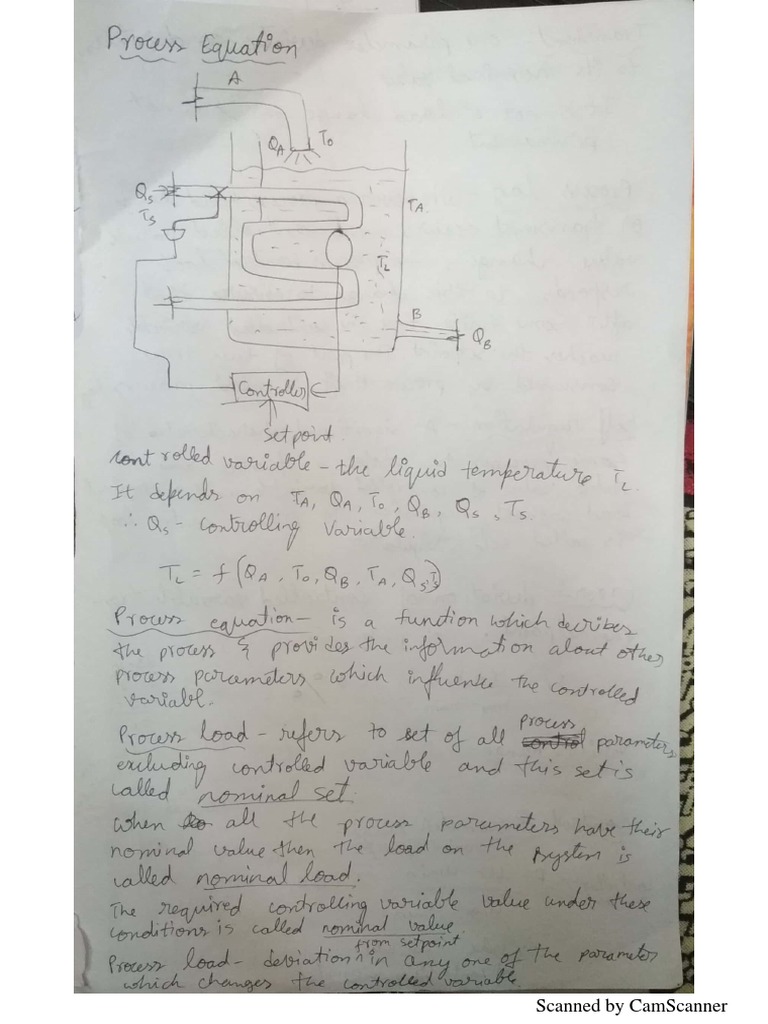 Process Equation
A
QA
To
Qs
Ts
TA
TL
B
QB
Controller
setpoint
controlled variable - the liquid temperature TL
It depends on TA, QA, To, QB, Qs, Ts.
∴ Qs - controlling variable.
TL = f(QA, To, QB, TA, Qs, Ts)
Process equation - is a function which decribes
the process & provides the information about other
process parameters which influence the controlled
variabl.
Process load - refers to set of all process parameters
excluding controlled variable and this set is
called nominal set.
When all the process parameters have their
nominal value then the load on the system is
called nominal load.
The required controlling variable value under these
conditions is called nominal value.
from setpoint
Process load - deviation in any one of the parameter
which changes the controlled variable.
Scanned by CamScanner